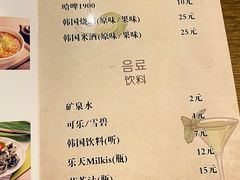 哈啤1900 10元
韩国烧酒(原味/果味) 25元
韩国米酒(原味/果味) 25元
음료
饮料
矿泉水 2元
可乐/雪碧 4元
韩国饮料(听) 7元
乐天Milkis(瓶) 12元
15元